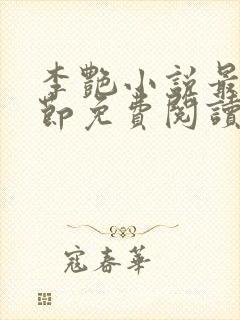 李艷小說最
節免費閱讀
寇春華